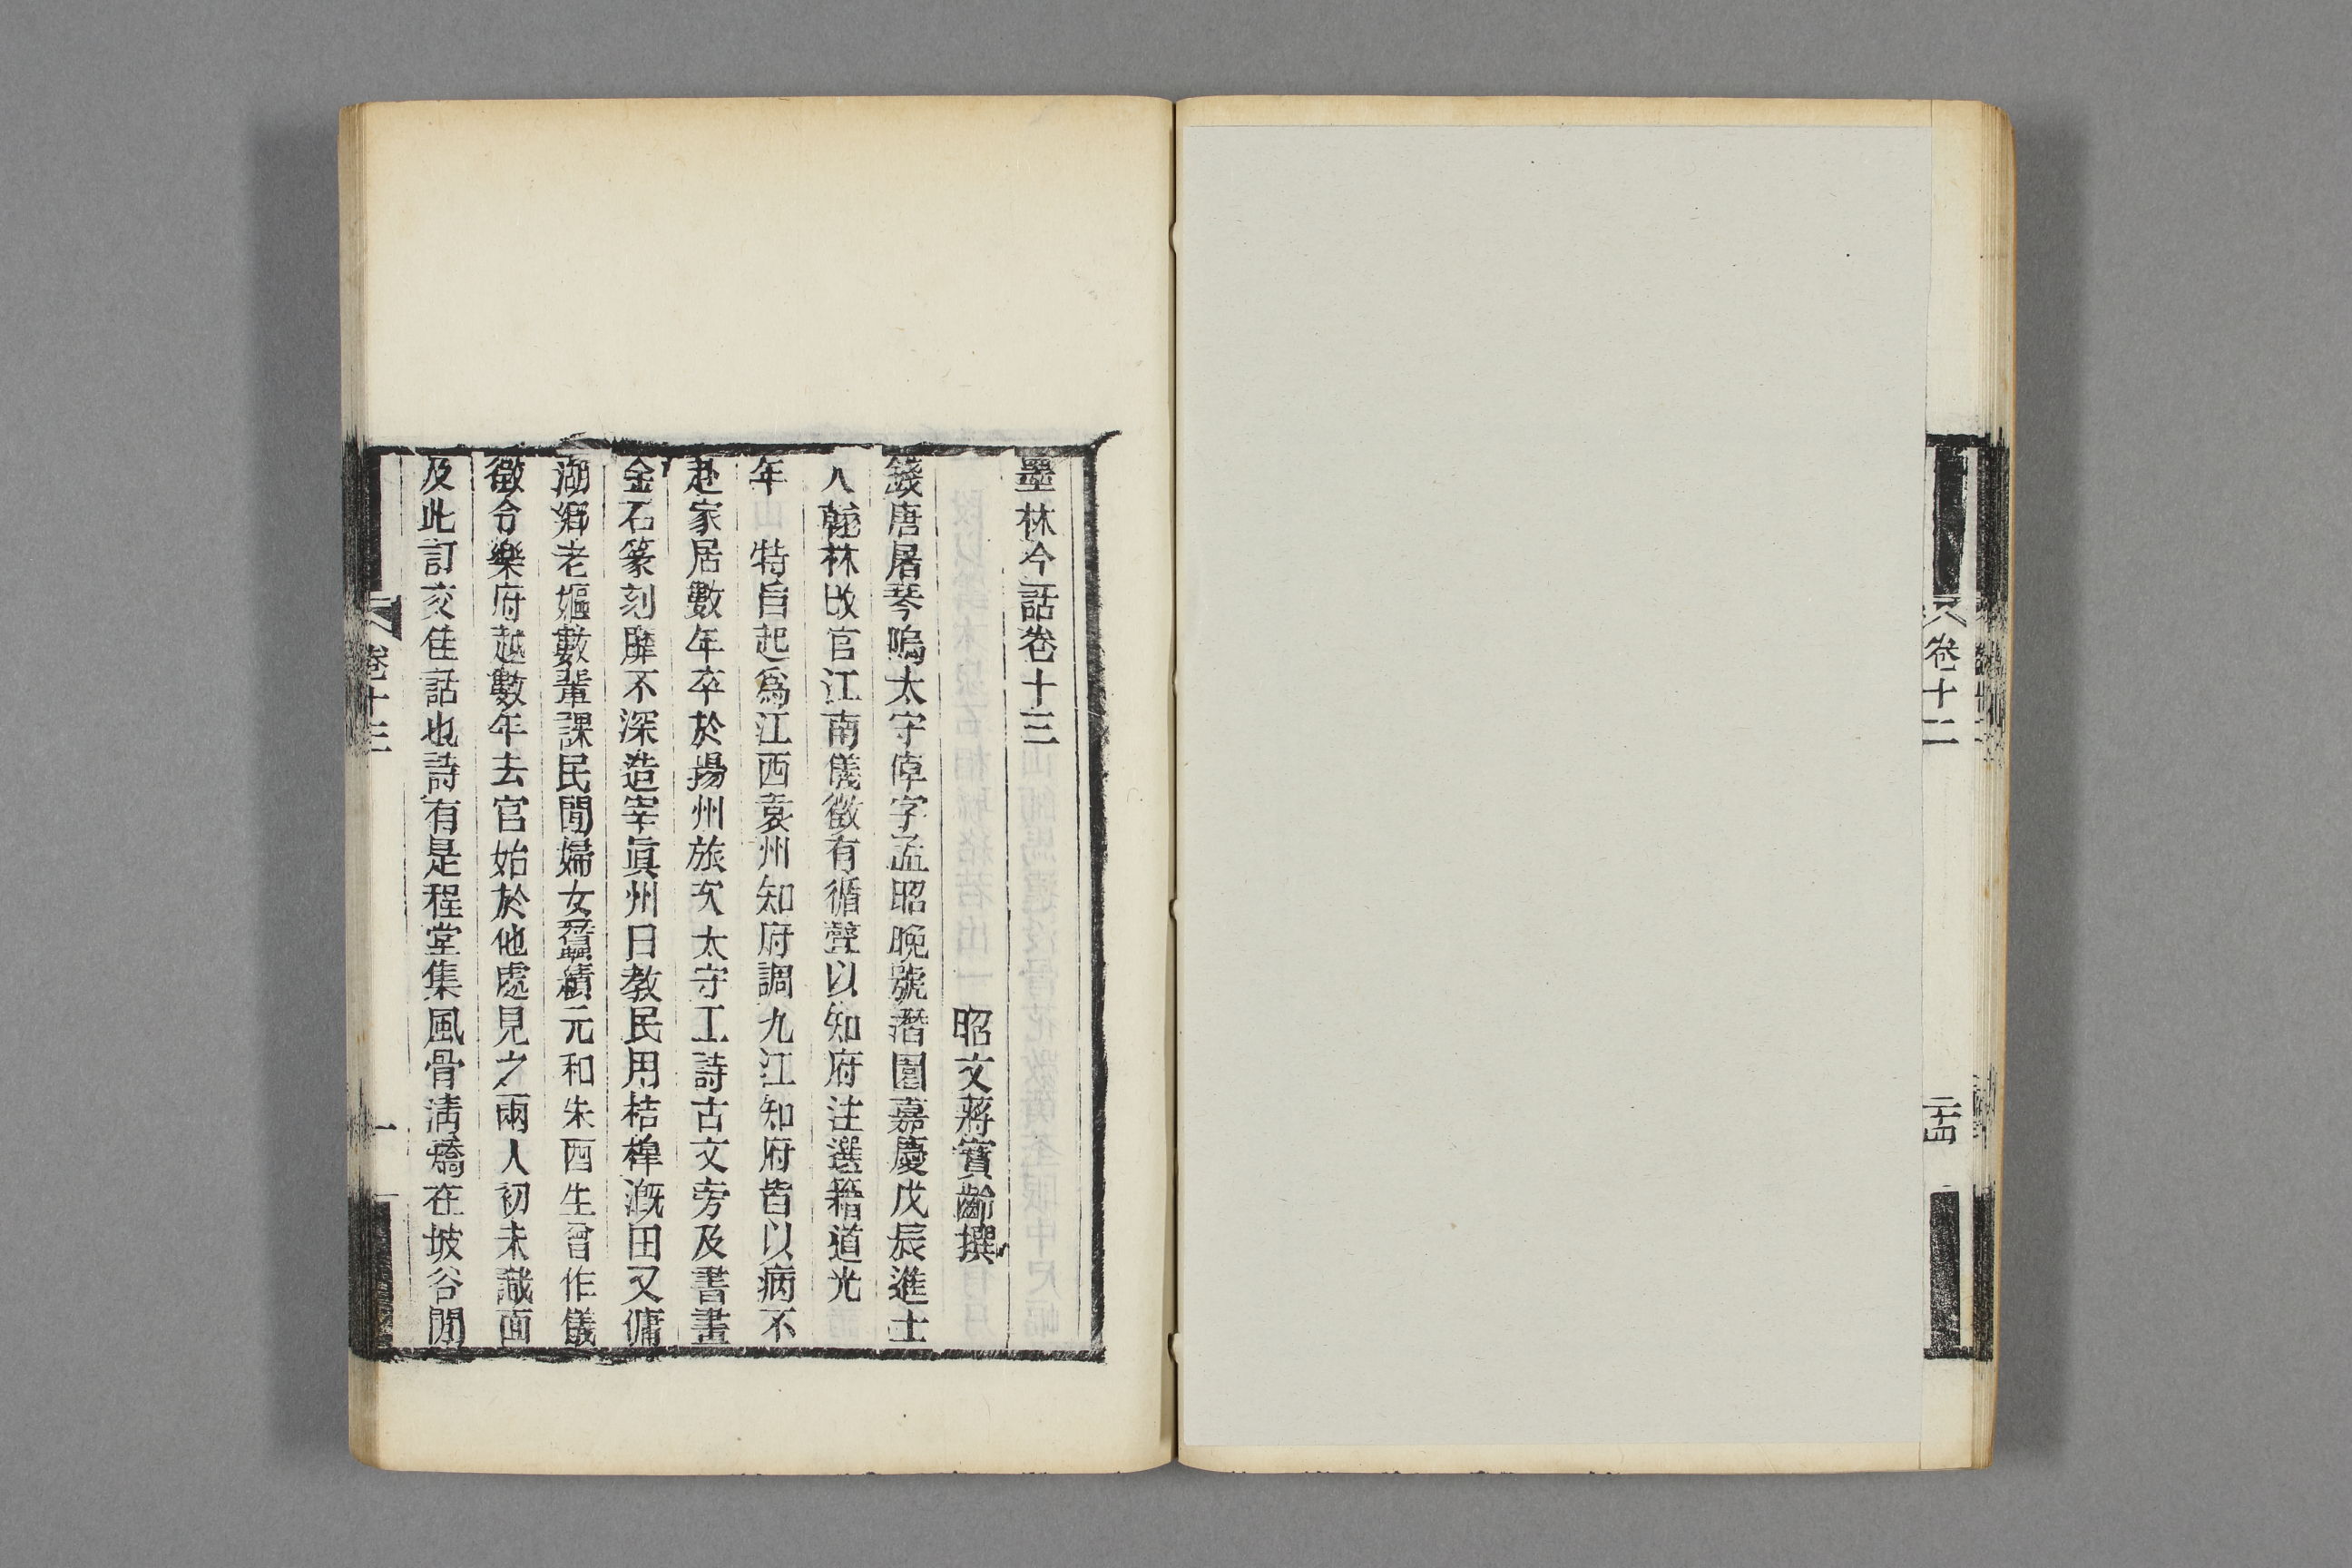 卷十二
二十四
墨林今話卷十三
昭文蔣寶齡撰
錢唐屠琴鳴太守倬字孟昭晚號潛園嘉慶戊辰進士
入翰林改官江南儀徵有循聲以知府注選籍道光
年特旨起爲江西袁州知府調九江知府皆以病不
赴家居數年卒於揚州旅次太守工詩古文旁及書畫
金石篆刻靡不深造宰眞州日教民用桔槹溉田又傭
湖鄉老嫗數輩課民間婦女蠶績元和朱酉生曾作儀
徵令樂府越數年去官始於他處見之兩人初未識面
及此訂交佳話也詩有是程堂集風骨淸矯在坡谷間
卷十三
一